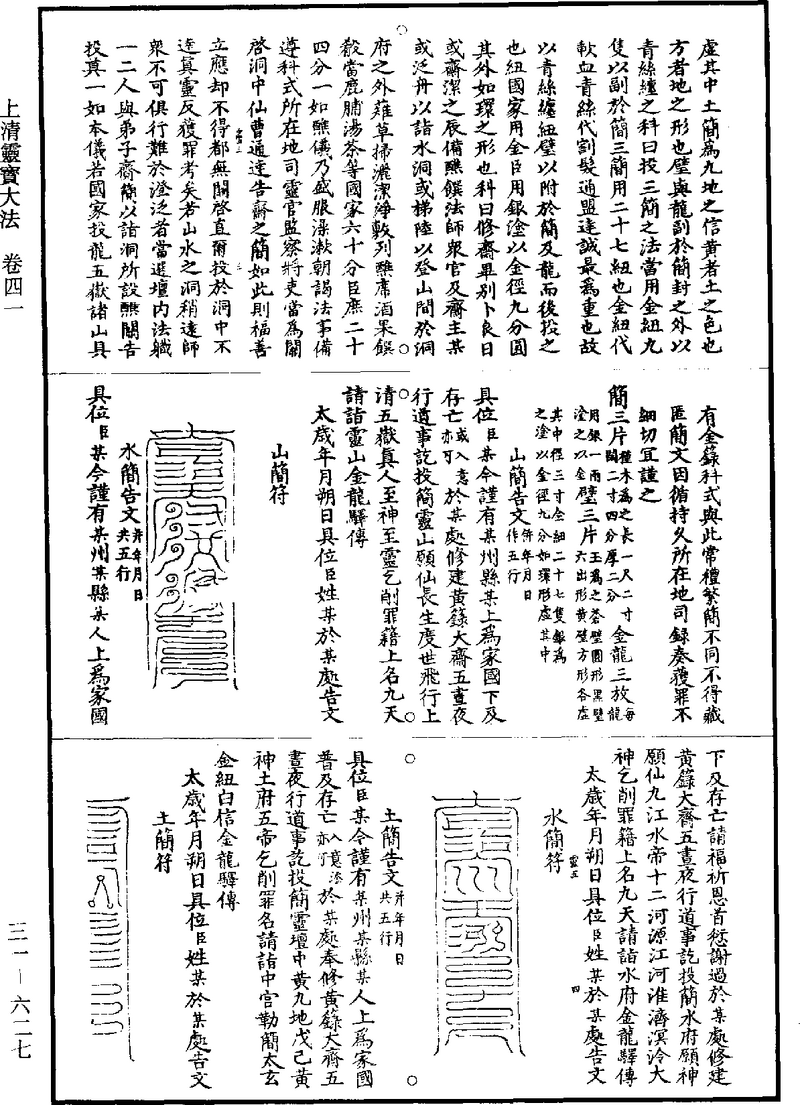 虛其中土簡為九地之信黃者土之色也
方者地之形也璧與龍副於簡封之外以
青絲纏之科曰投三簡之法當用金紐九
隻以副於簡三簡用二十七紐也金紐代
軟血青絲代割髮通盟達誠最為重也故
以青絲纏紐璧以附於簡及龍而後投之
也紐國家用金臣用銀塗以金徑九分圓
其外如環之形也科曰修齋畢別卜良日
或齋潔之辰備醮饌法師衆官及齋主某
或泛舟以詣水洞或梯陸以登山間於洞
府之外薙草掃灑潔淨敷列醮席酒果饌
殽當鹿脯湯茶等國家六十分臣庶二十
四分一如醮儀乃盛服澡漱朝謁法事備
遵科式所在地司靈官監察將吏當為關
啓洞中仙曹通達告齋之簡如此則福善
立應却不得都無關啓直爾投於洞中不
達真靈反獲罪考矣若山水之洞稍遠師
衆不可俱行難於澄泛者當選壇内法職
一二人與弟子齋簡以詣洞所設醮關告
投真一如本儀若國家投龍五嶽諸山具
有金籙科式與此常禮繁簡不同不得藏
匿簡文因循持久所在地司錄奏獲罪不
細切宜謹之
簡三片槿木為之長一尺二寸闊二寸四分厚二分金龍三放每龍用銀一兩塗之以金璧三片玉為之蒼璧圓形黑璧六出形黃璧方形各虛其中徑三寸金紐二十七隻銀為之塗以金徑九分如環形虛其中
山簡告文併年月日作五行
具位臣某今謹有某州縣某上為家國下及
存亡或入意亦可於某處修建黃籙大齋五晝夜
行道事訖投簡靈山願仙長生度世飛行上
清五嶽真人至神至靈乞削罪籍上名九天
請詣靈山金龍驛傳
太歲年月朔日具位臣姓某於某處告文
山簡符
水簡告文并年月日共五行
具位臣某今謹有某州某縣某人上為家國
下及存亡請福祈恩首愆謝過於某處修建
黃籙大齋五晝夜行道事訖投簡水府願神
願仙九江水帝十二河源江河淮濟溟泠大
神乞削罪籍上名九天請詣水府金龍驛傳
太歲年月朔日具位臣姓某於某處告文
水簡符
土簡告文并年月日共五行
具位臣某今謹有某州某縣某人上為家國
普及存亡入意添亦可於某處奉修黃籙大齋五
晝夜行道事訖投簡靈壇中黃九地戊己黃
神土府五帝乞削罪名請詣中宮勒簡太玄
金紐白信金龍驛傳
太歲年月朔日具位臣姓某於某處告文
土簡符
上清靈寶大法 卷四一
三一—六二七